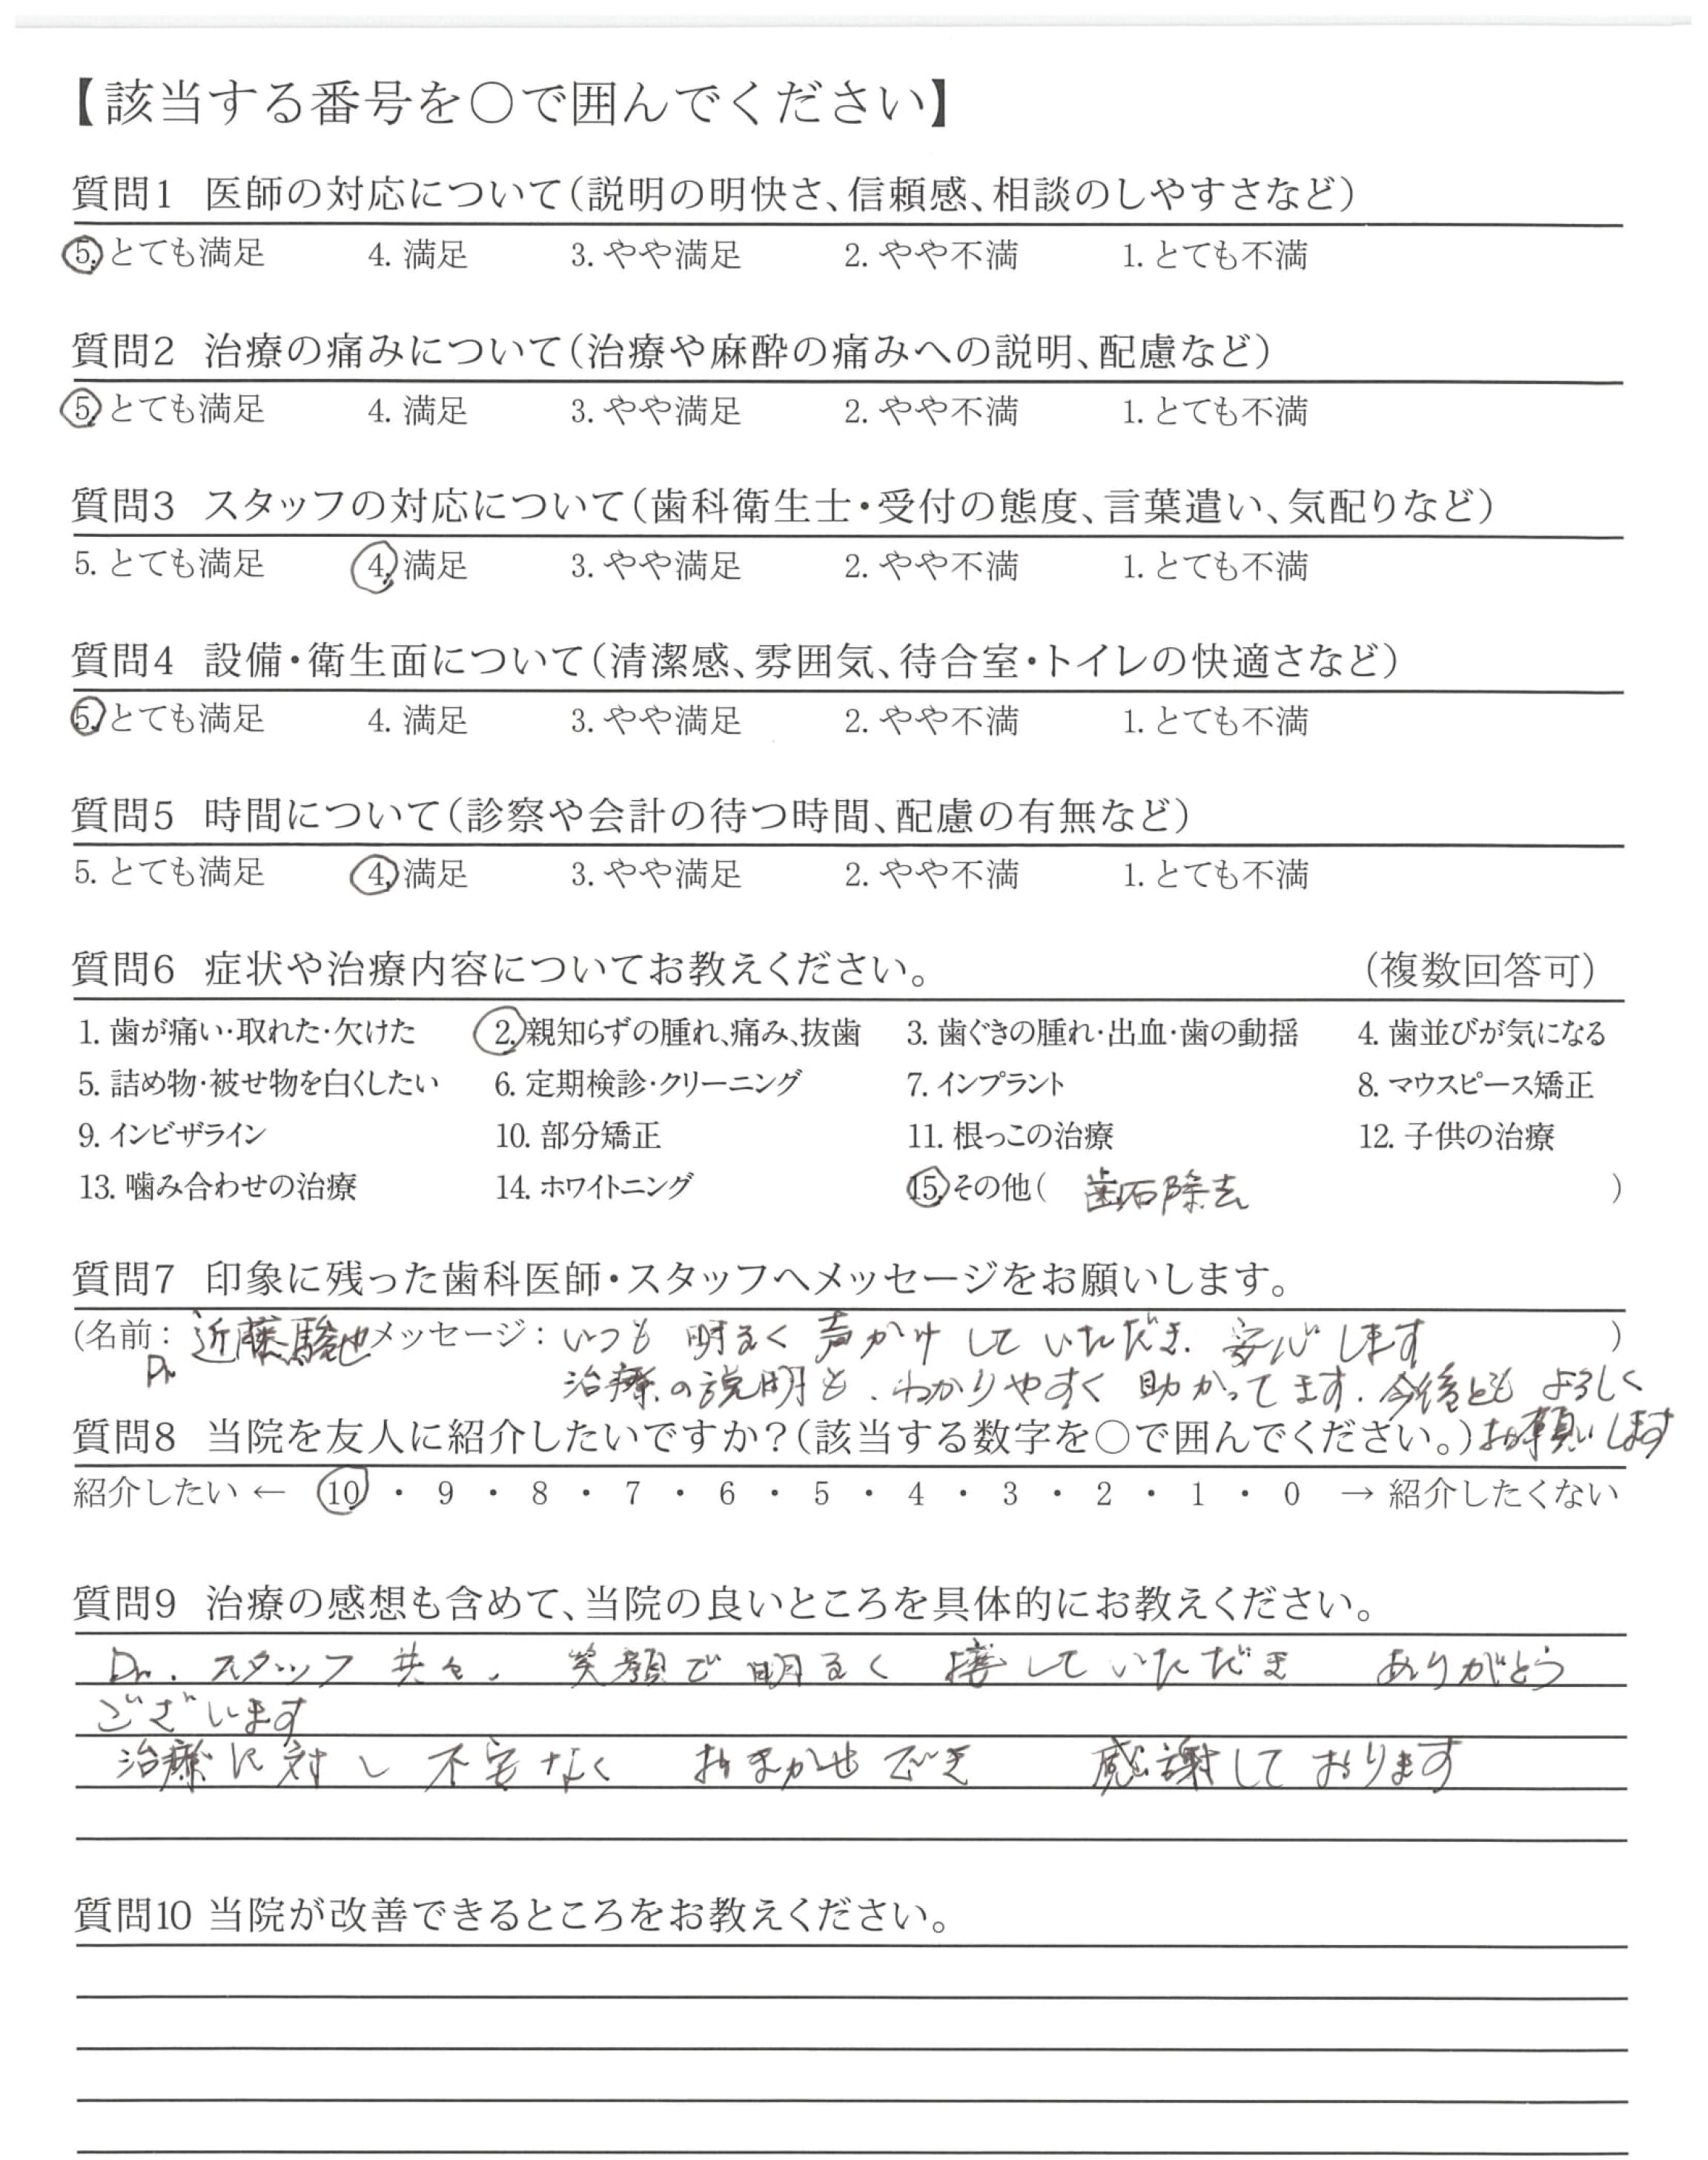 【該当する番号を〇で囲んでください】
質問1 医師の対応について(説明の明快さ、信頼感、相談のしやすさなど)
5. とても満足 4. 満足 3. やや満足 2. やや不満 1. とても不満
質問2 治療の痛みについて(治療や麻酔の痛みへの説明、配慮など)
5. とても満足 4. 満足 3. やや満足 2. やや不満 1. とても不満
質問3 スタッフの対応について(歯科衛生士・受付の態度、言葉遣い、気配りなど)
5. とても満足 4. 満足 3. やや満足 2. やや不満 1. とても不満
質問4 設備・衛生面について(清潔感、雰囲気、待合室・トイレの快適さなど)
5. とても満足 4. 満足 3. やや満足 2. やや不満 1. とても不満
質問5 時間について(診察や会計の待つ時間、配慮の有無など)
5. とても満足 4. 満足 3. やや満足 2. やや不満 1. とても不満
質問6 症状や治療内容についてお教えください。 (複数回答可)
1. 歯が痛い・取れた・欠けた 2. 親知らずの腫れ、痛み、抜歯 3. 歯ぐきの腫れ・出血・歯の動揺 4. 歯並びが気になる
5. 詰め物・被せ物を白くしたい 6. 定期検診・クリーニング 7. インプラント 8. マウスピース矯正
9. インビザライン 10. 部分矯正 11. 根っこの治療 12. 子供の治療
13. 噛み合わせの治療 14. ホワイトニング 15. その他( 歯石除去 )
質問7 印象に残った歯科医師・スタッフへメッセージをお願いします。
(名前: 近藤駿也 メッセージ: いつも 明るく 声かけ して いただき、安心 します )
Dr 治療の説明も、わかりやすく 助かってます. 今後とも よろしく
質問8 当院を友人に紹介したいですか?(該当する数字を〇で囲んでください。) お願いします
紹介したい ← 10 ・ 9 ・ 8 ・ 7 ・ 6 ・ 5 ・ 4 ・ 3 ・ 2 ・ 1 ・ 0 → 紹介したくない
質問9 治療の感想も含めて、当院の良いところを具体的にお教えください。
Dr. スタッフ 共々、 笑顔で 明るく 接して いただき ありがとう
ございます
治療に対し 不安なく おまかせ でき 感謝して おります
質問10 当院が改善できるところをお教えください。